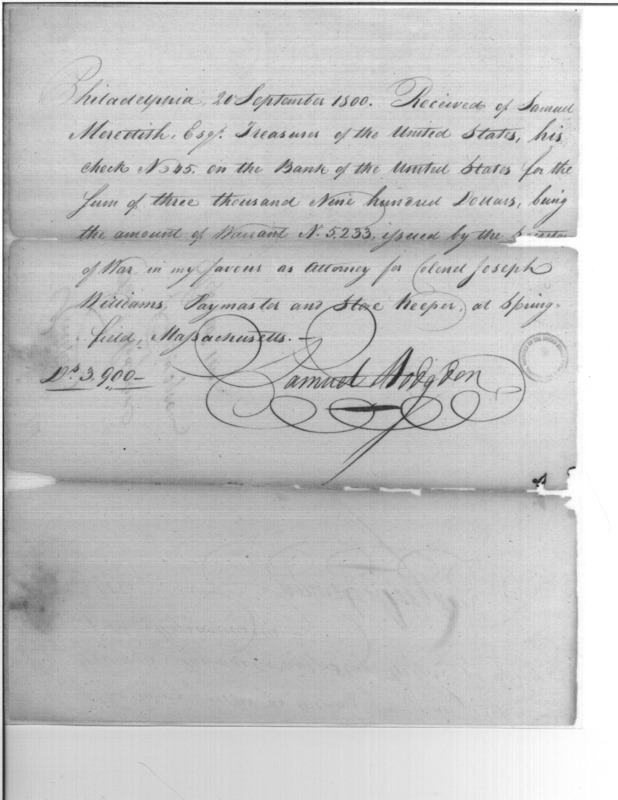 Philadelphia, 20 September 1800. Received of Samuel
Meredith, Esqr. Treasurer of the United States, his
check No 45. on the Bank of the United States for the
Sum of three thousand Nine hundred Dollars, being
the amount of Warrant No. 5,233, issued by the
of War in my favour as Attorney for Colonel Joseph
Williams, Paymaster and Store Keeper, at Spring-
field, Massachusetts.—
Drs 3,900—
Samuel Hodgdon